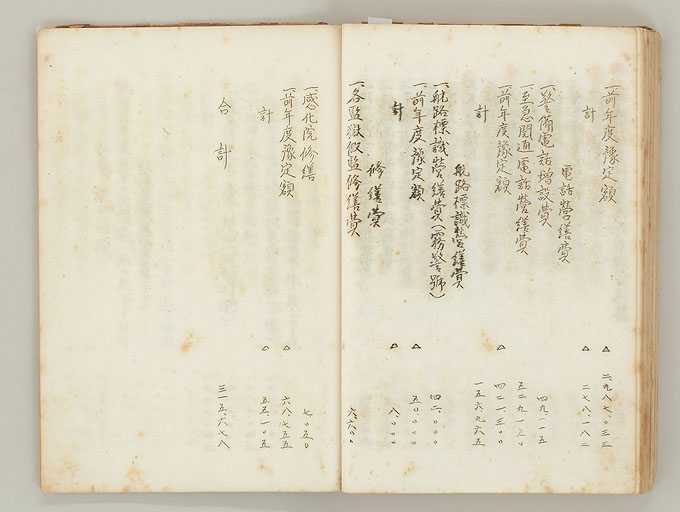 一、前年度豫定額 △ 二、九八七、〇三三
計 △ 二七八、一八二
電話營繕費
一、警備電話增設費 四九、一一五
一、至急開通電話營繕費 五二九、一五〇
一、前年度豫定額 △ 四二一、三〇〇
計 一五六、九六五
航路標識營繕費
一、航路標識營繕費(霧警號) 四二、〇〇〇
一、前年度豫定額 △ 五〇、〇〇〇
計 △ 八、〇〇〇
修繕費
一、各監獄仮監修繕費 六、六〇〇
一、感化院修繕 七、〇五〇
一、前年度豫定額 △ 六八、七五五
計 △ 五五、一〇五
合計 三一五、六七八